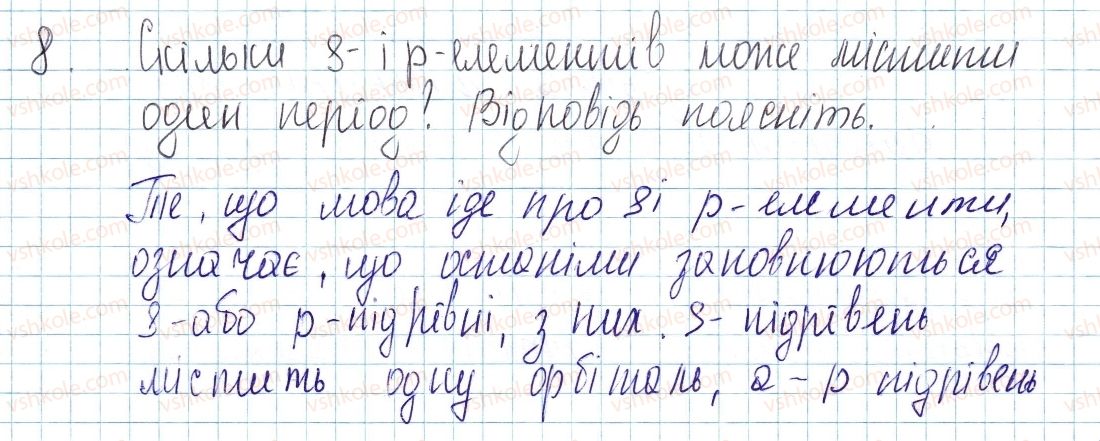 8. Скільки s- і p-елементів може містити
один період? Відповідь поясніть.
Те, що мова іде про s і p-елементи,
означає, що останіми заповнюються
s-або p-підрівні, з них. s-підрівень
містить одну орбіталь, а-p підрівень